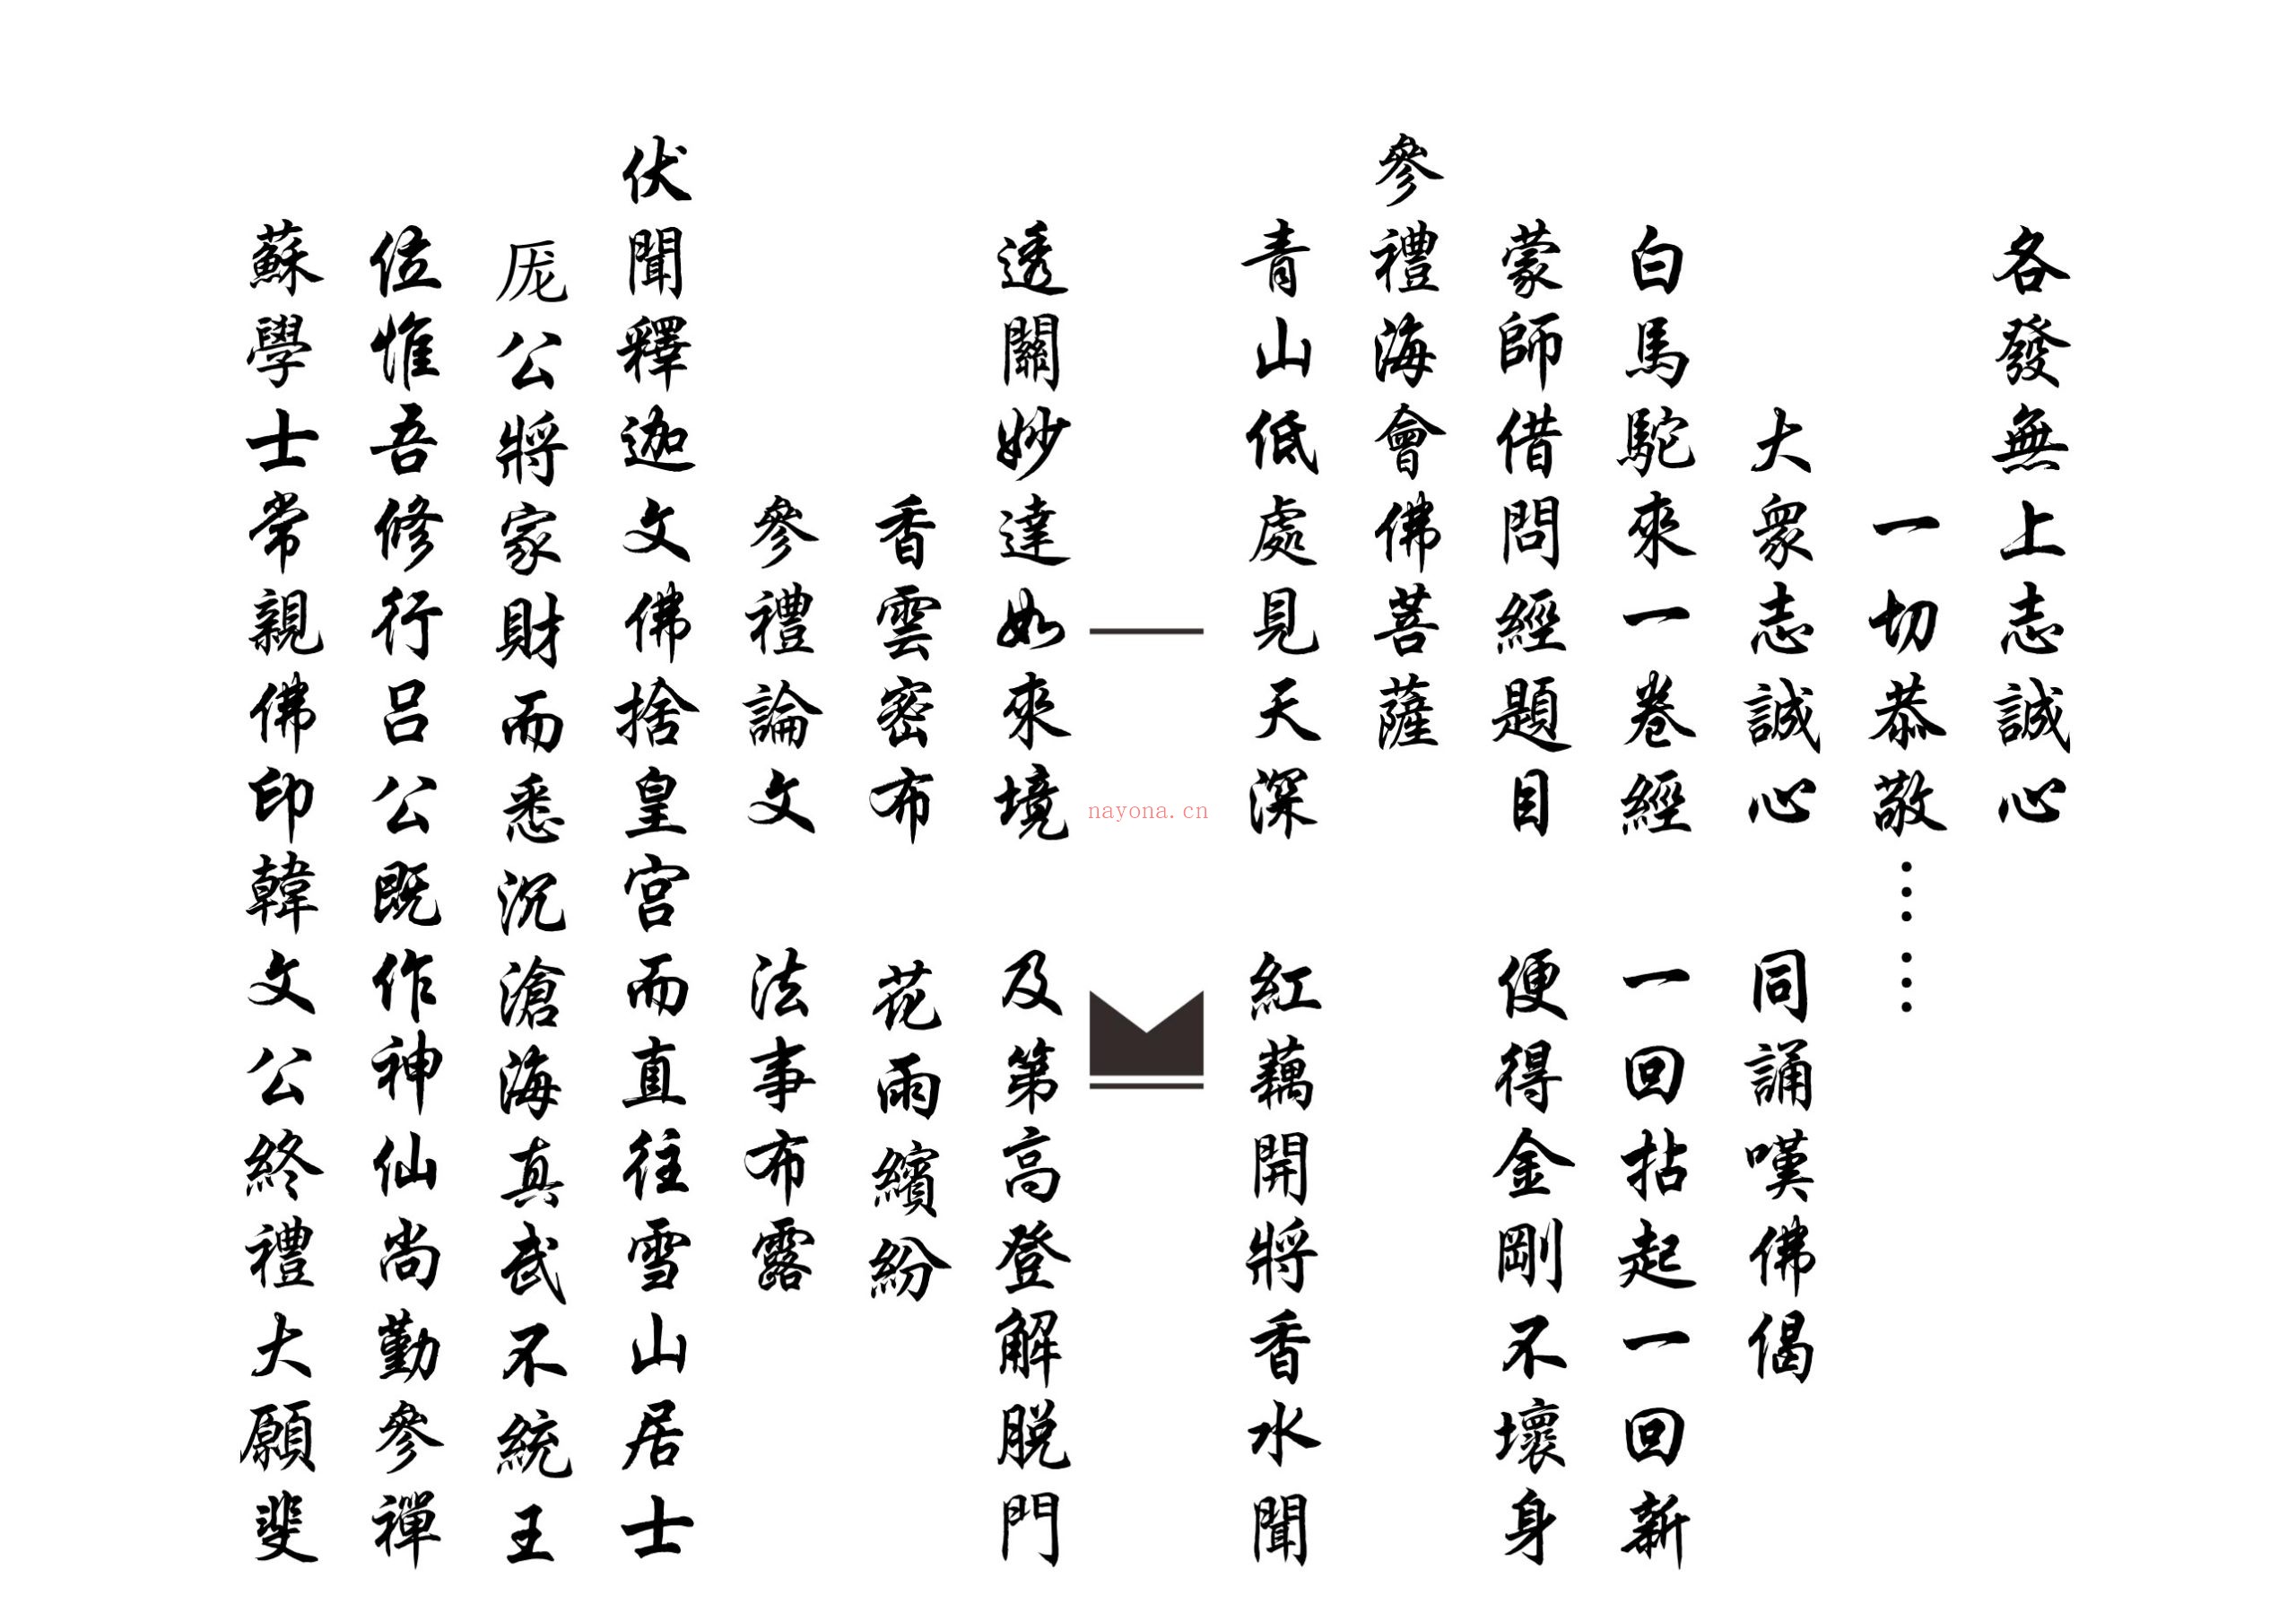 各發無上志誠心
一切恭敬……
大衆志誠心　同誦嘆佛偈
白馬駝來一卷經　一回拈起一回新
蒙師借問經題目　便得金剛不壞身
參禮海會佛菩薩
青山低處見天深　紅藕開將香水聞
nayona.cn
透關妙達如來境　及第高登解脱門
香雲密布　花雨繽紛
參禮論文　法事布露
伏聞釋迦文佛捨皇宫而直往雪山居士
厐公將家財而悉沉滄海真武不統王
位惟吾修行吕公既作神仙尚勤參禪
蘇學士常親佛印韓文公終禮大願斐